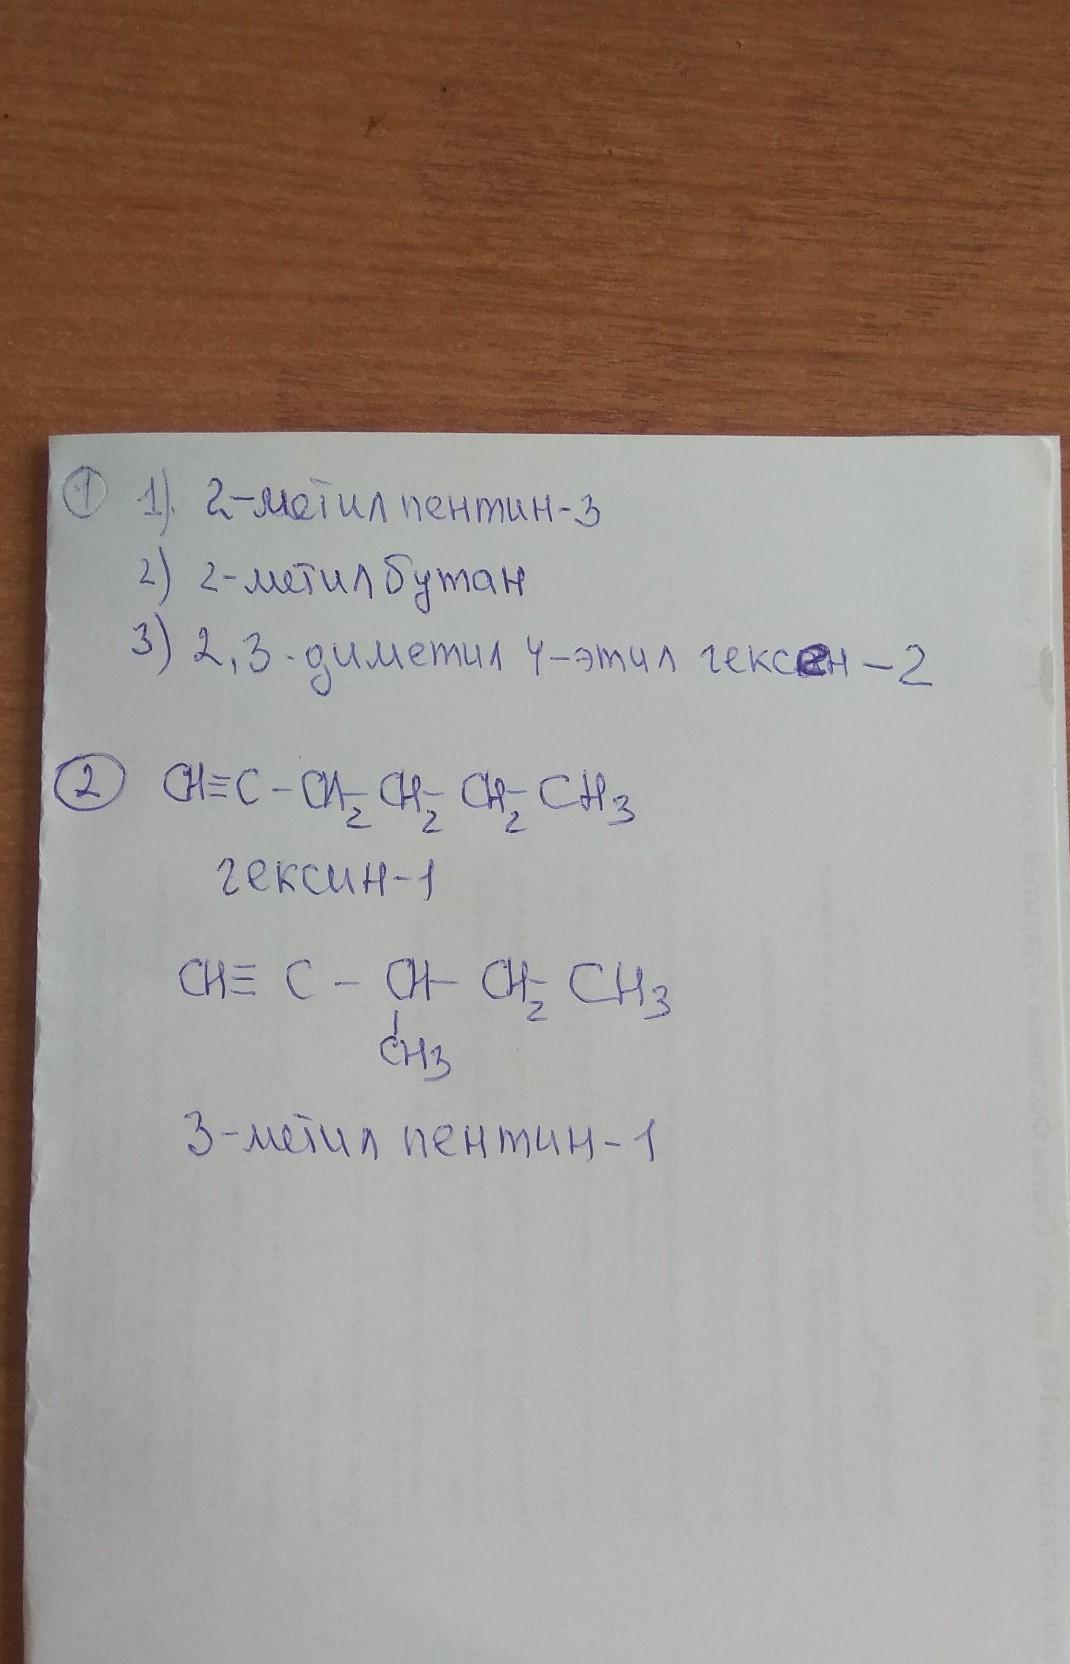 ① 1) 2-метилпентин-3
2) 2-метилбутан
3) 2,3-диметил 4-этил гексен-2
② CH≡C-CH₂-CH₂-CH₂-CH₃
гексин-1
CH≡C-CH-CH₂-CH₃
CH₃
3-метил пентин-1